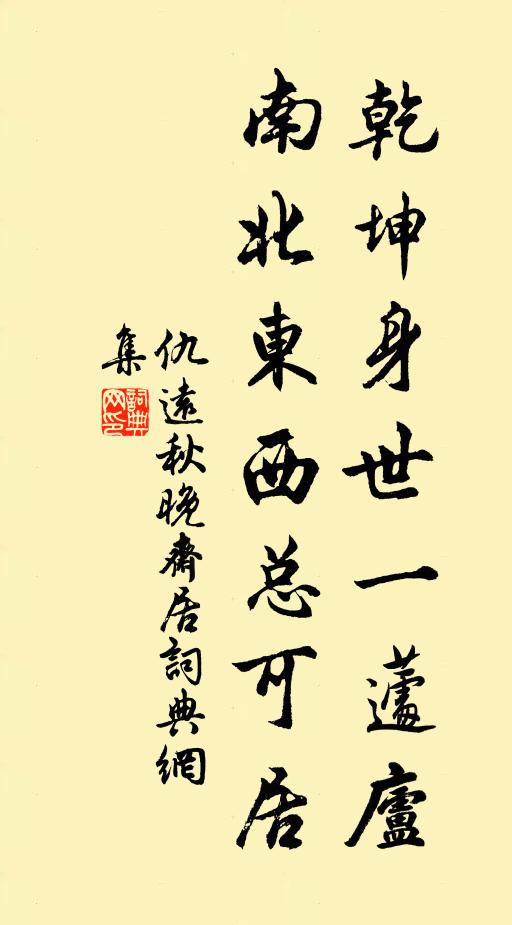 乾坤身世一蘧廬
南北東西总可居
仇遠秋晚齋居詞典網
集
詞典网印